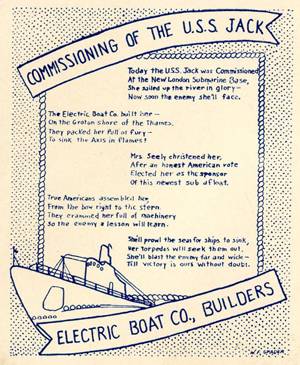 COMMISSIONING OF THE U.S.S. JACK
Today the U.S.S. Jack was Commissioned
At the New London Submarine Base,
She sailed up the river in glory —
Now soon the enemy she'll face.
The Electric Boat Co. built her —
On the Groton shore of the Thames.
They packed her full of fury —
To sink the Axis in flames!
Mrs. Seely christened her,
After an honest American vote
Elected her as the sponsor
Of this newest sub afloat.
True Americans assembled her,
From the bow right to the stern.
They crammed her full of machinery
So the enemy a lesson will learn.
She'll prowl the seas for ships to sink,
Her torpedos will seek them out.
She'll blast the enemy far and wide —
Till victory is ours without doubt.
ELECTRIC BOAT CO., BUILDERS